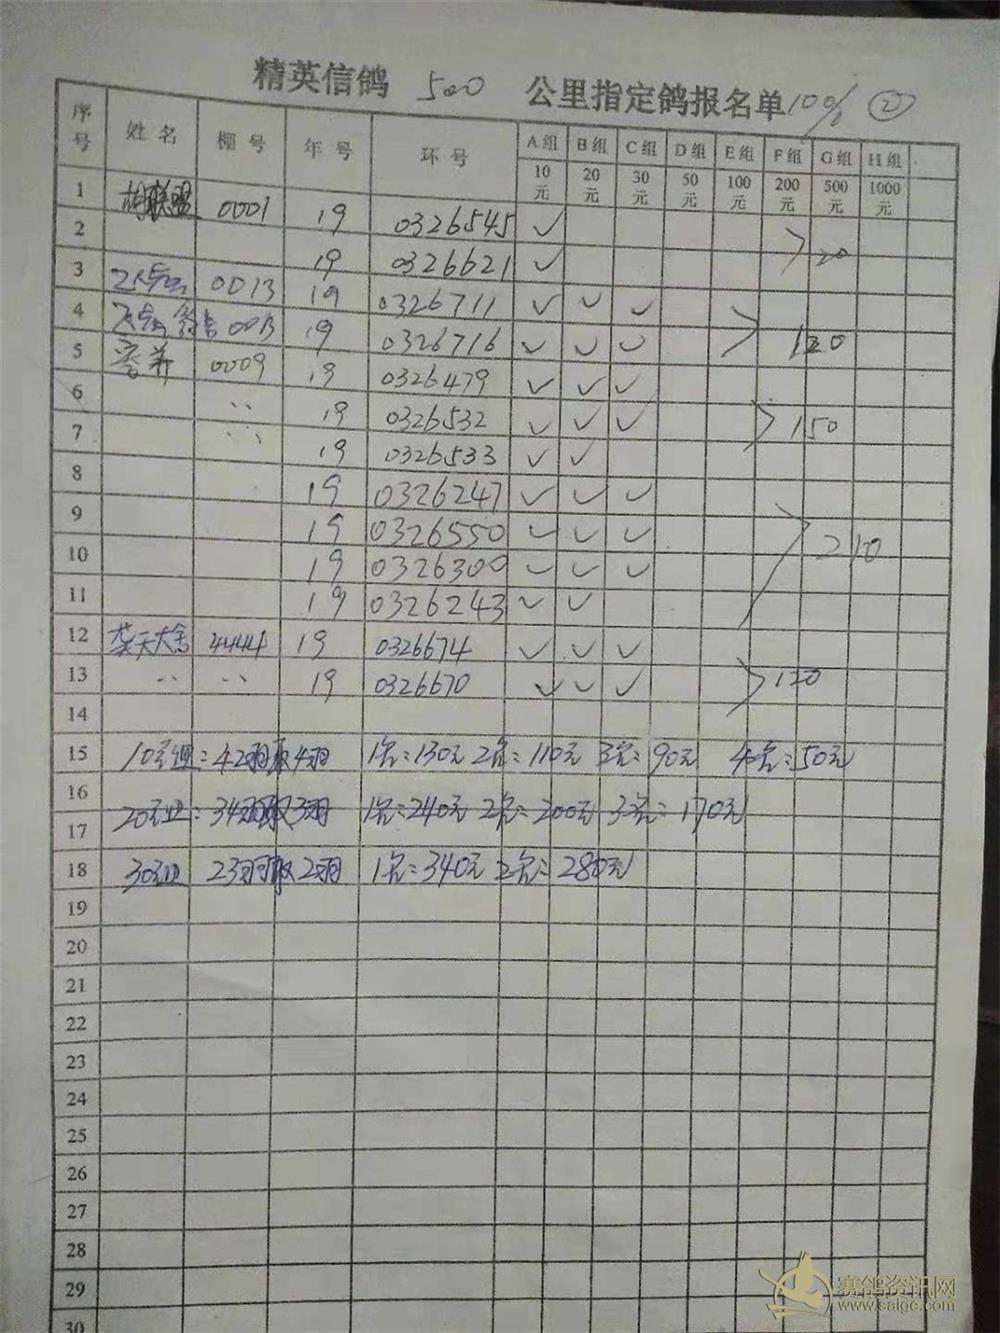 精英信鸽 500 公里指定鸽报名单 10% ②
序号 姓名 棚号 年号 环号 A组 B组 C组 D组 E组 F组 G组 H组
10元 20元 30元 50元 100元 200元 500元 1000元
1 联盟 0001 19 0326545 ✓
2 19 0326621 ✓ 20
3 0013 19 0326711 ✓ ✓ ✓
4 0013 19 0326716 ✓ ✓ ✓ 120
5 0009 19 0326479 ✓ ✓ ✓
6 〃 19 0326532 ✓ ✓ ✓ 150
7 〃 19 0326533 ✓ ✓
8 19 0326247 ✓ ✓ ✓
9 19 0326550 ✓ ✓ ✓ 210
10 19 0326300 ✓ ✓ ✓
11 19 0326243 ✓ ✓
12 4444 19 0326674 ✓ ✓ ✓
13 〃 〃 19 0326670 ✓ ✓ ✓ 120
14
15 10元组: 42羽取4羽 1名=130元 2名=110元 3名=90元 4名=50元
16
20元组: 34羽取3羽 1名=240元 2名=200元 3名=170元
17
18 30元组 23羽取2羽 1名=340元 2名=280元
19
20
21
22
23
24
25
26
27
28
29
30
赛鸽资讯网
www.saige.com